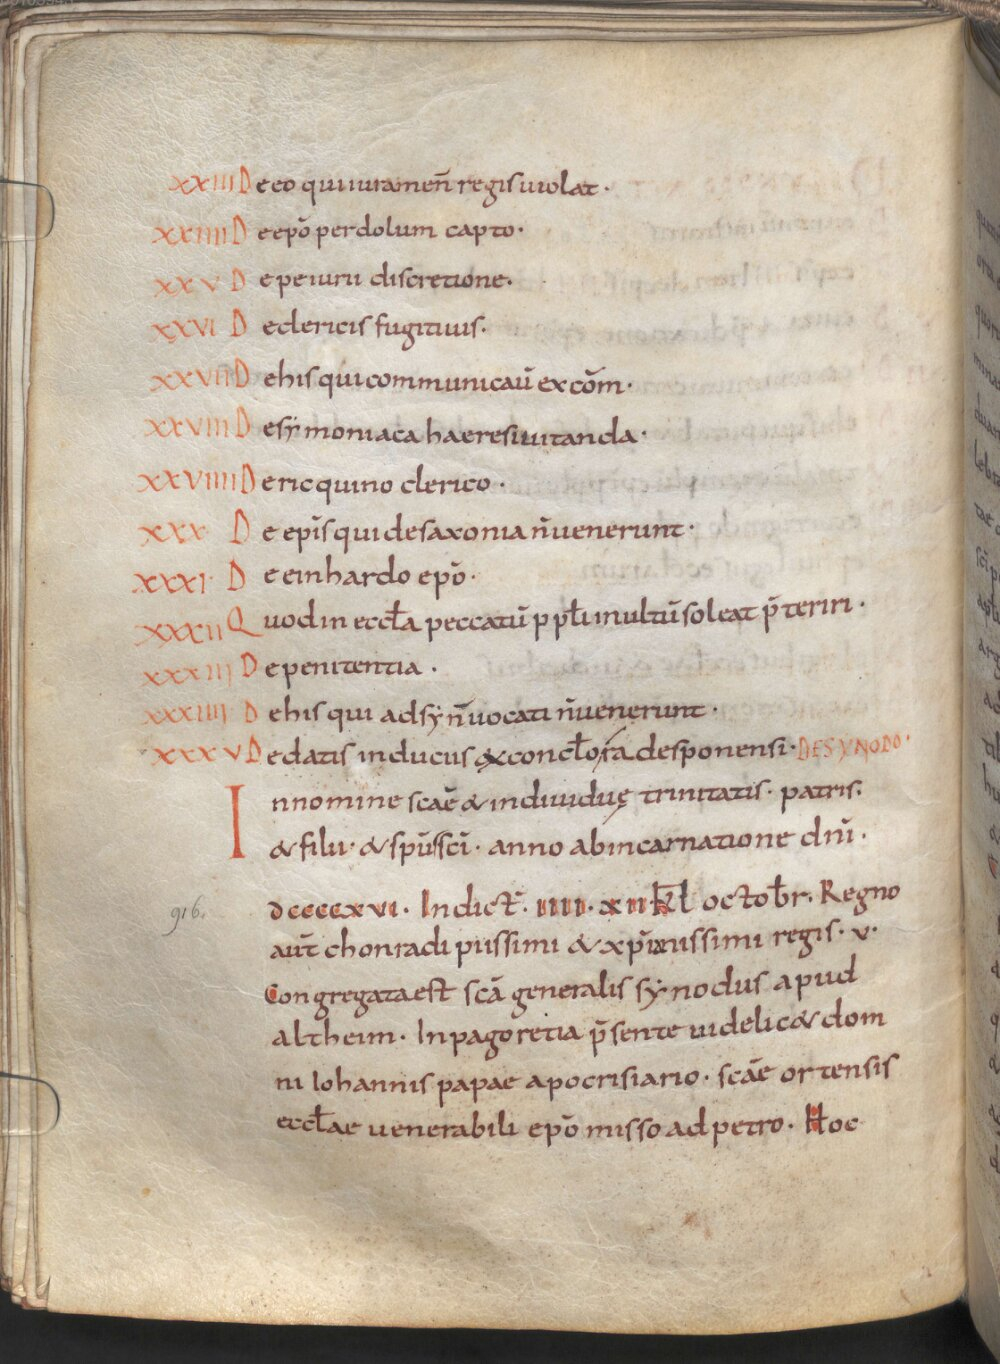 XXIII De eo qui iuramen̄ regis uiolat·
XXIIII De ep̄o per dolum capto·
XXV De peiurii discretione·
XXVI De clericis fugitiuis·
XXVII De his qui communicaū excōm·
XXVIII De symoniaca haeresi uitanda·
XXVIIII De ricquino clerico·
XXX De ep̄is qui de saxonia n̄ uenerunt·
XXXI· De einhardo ep̄o·
XXXII Quod in eccl̄a peccatū p ppl̄i multū soleat p̄teriri·
XXXIII De penitentia·
XXXIIII De his qui ad syn̄ uocati n̄ uenerunt·
XXXV De datis inducus & concl̄o ira desponensi· DE SYNODO·
In nomine scāe & indiuiduę trinitatis· patris·
& filii· & sp̄ūs sc̄i· anno ab incarnatione dn̄i·
916.
dccccxvi· Indict̄· iiii· xii kl̄ octob̄r· Regno
aūt chonradi piissimi & xp̄ianissimi regis· v·
Congregata est scā generalis synodus apud
altheim· In pago retia p̄sente uidelic& dom
ni Iohannis papae apocrisiario· scāe ortensis
eccl̄ae uenerabili ep̄o misso ad petro· Hoc